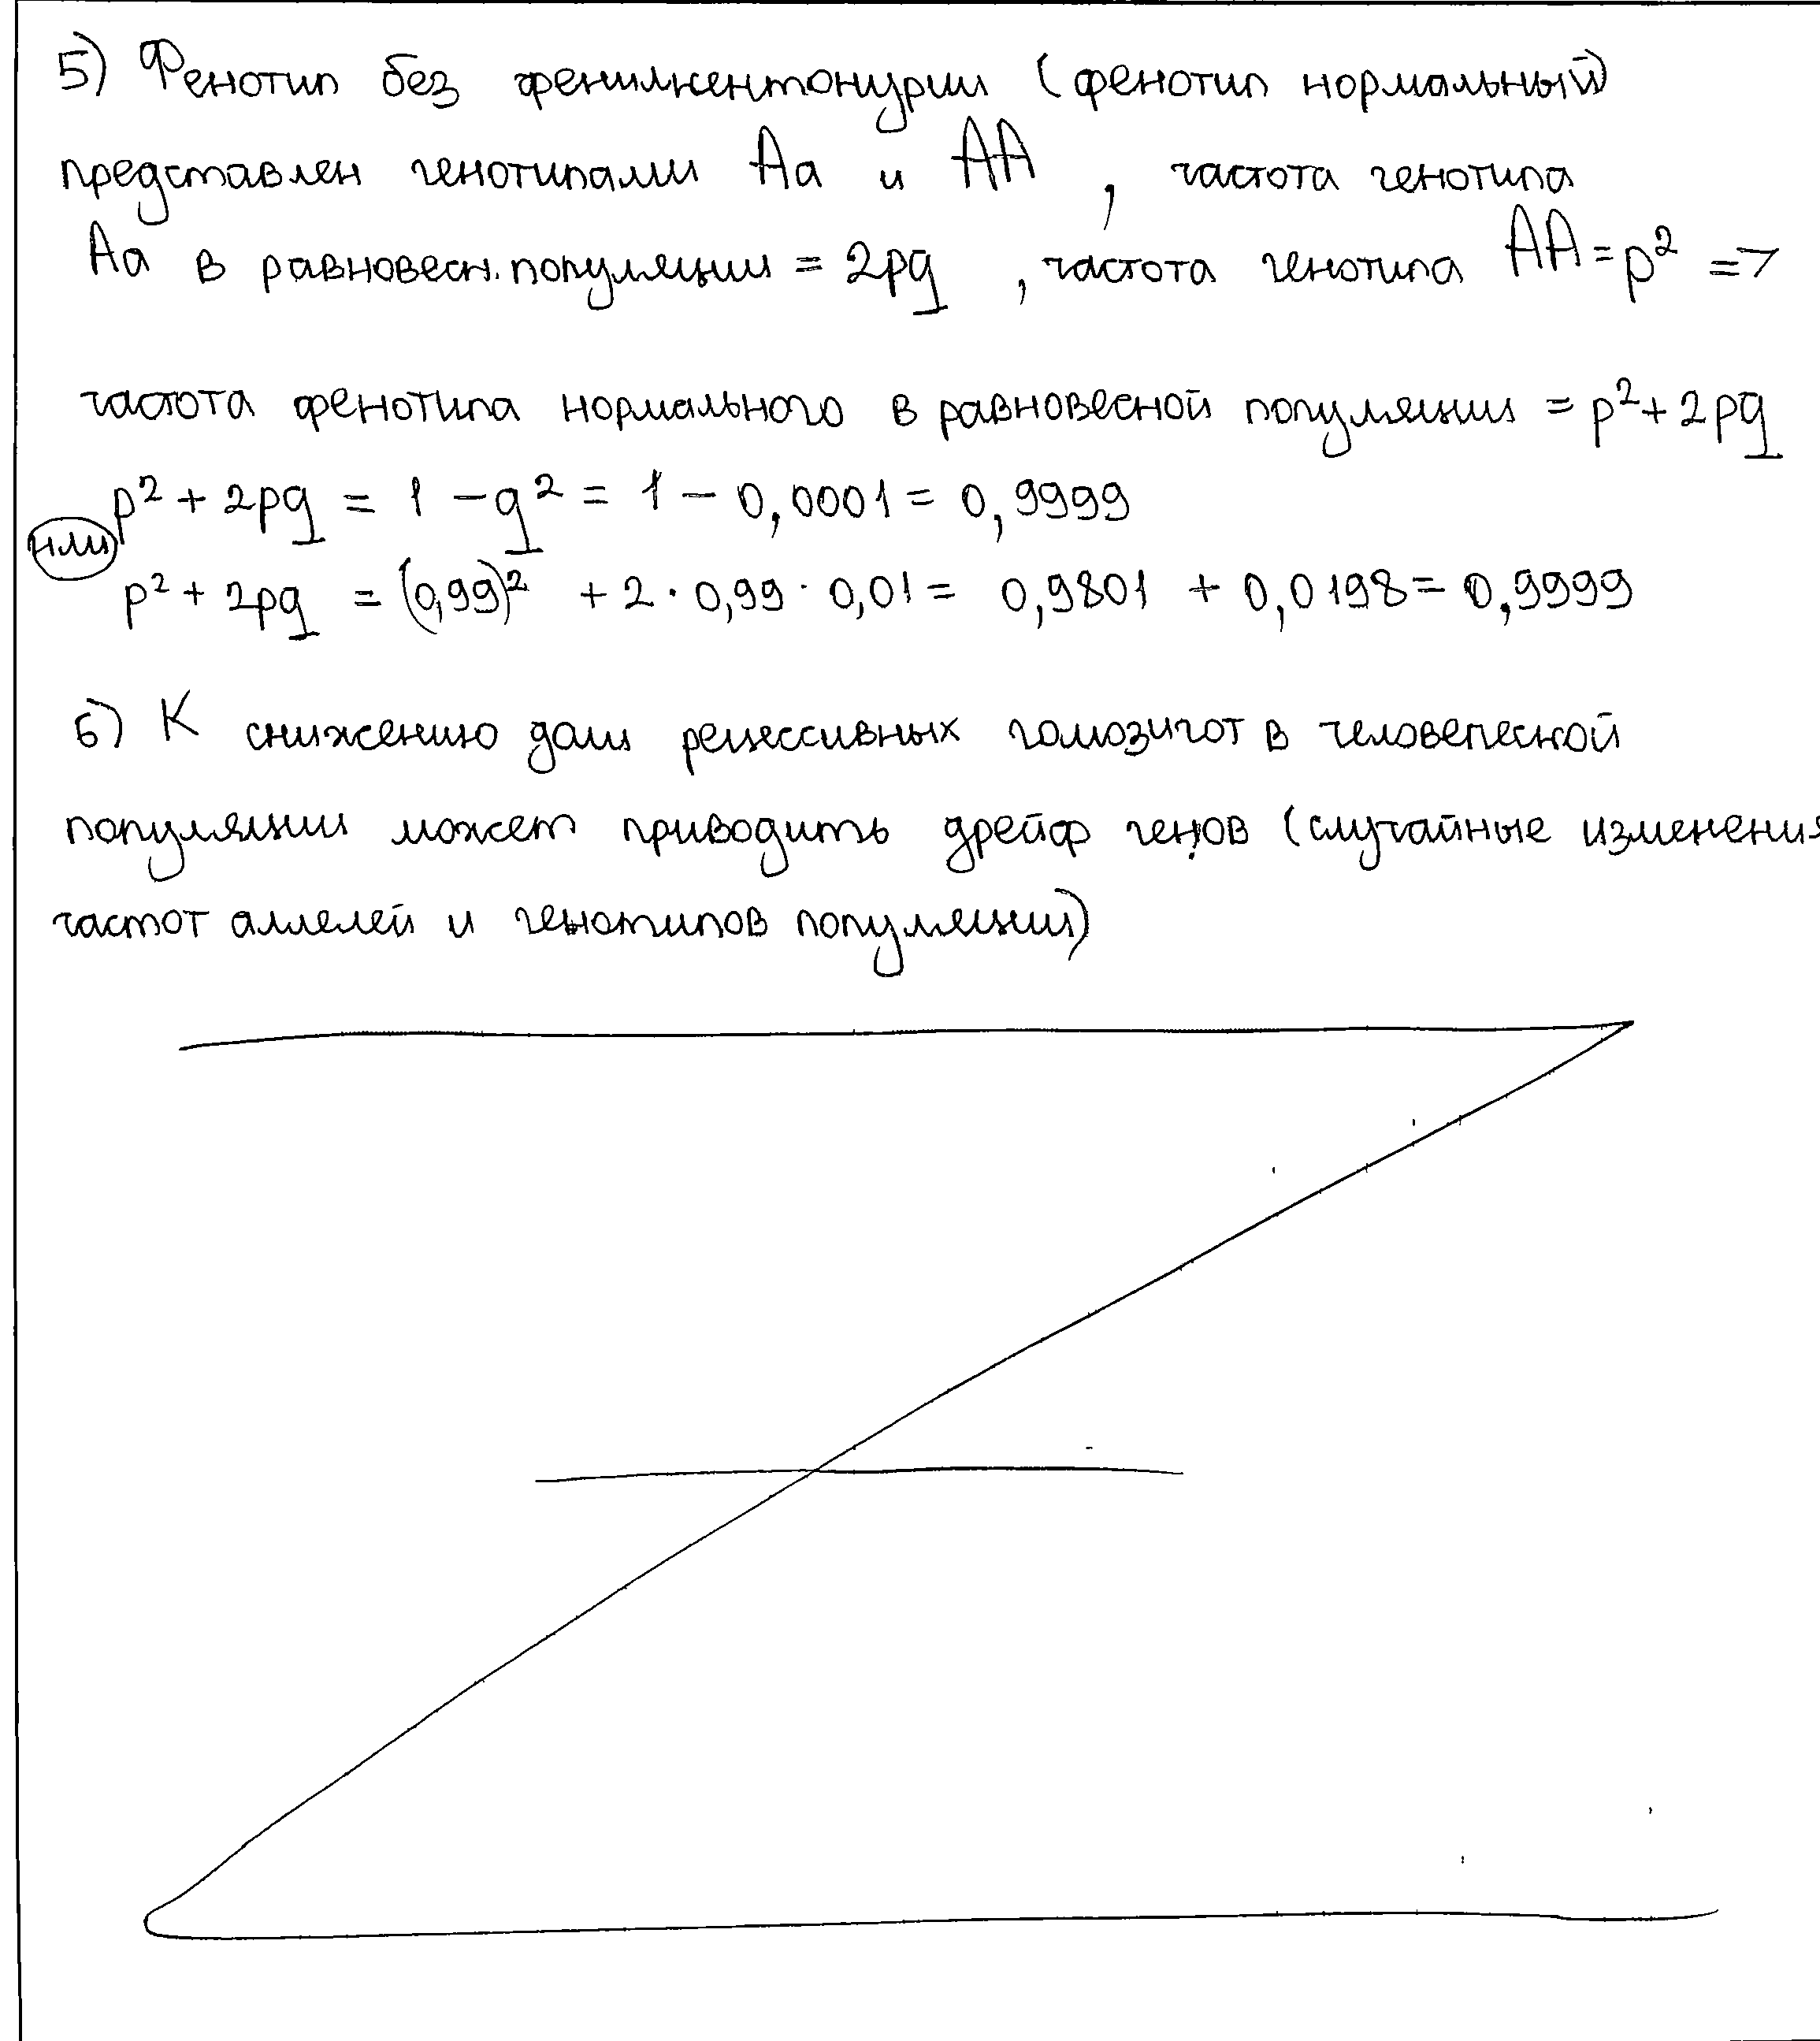 5) Фенотип без фенилкентонурии (фенотип нормальный)
представлен генотипами Аа и АА , частота генотипа
Аа в равновесн. популяции = 2pq , частота генотипа АА = p² =>
частота фенотипа нормального в равновесной популяции = p² + 2pq
p² + 2pq = 1 - q² = 1 - 0,0001 = 0,9999
или
p² + 2pq = (0,99)² + 2 · 0,99 · 0,01 = 0,9801 + 0,0198 = 0,9999
6) К снижению доли рецессивных гомозигот в человеческой
популяции может приводить дрейф генов (случайные изменения
частот аллелей и генотипов популяции)